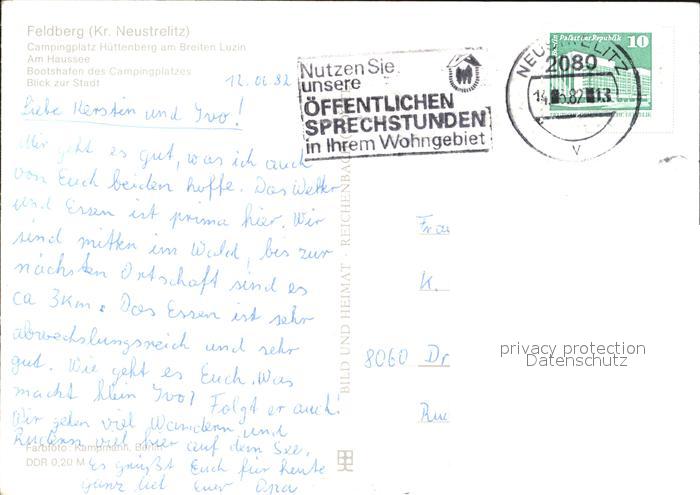 Feldberg (Kr. Neustrelitz)
Campingplatz Hüttenberg am Breiten Luzin
Am Haussee
Bootshafen des Campingplatzes
Blick zur Stadt
12.06.82
Liebe Kerstin und Ivo!
Mir geht es gut, was ich auch
von Euch beiden hoffe. Das Wetter
und Essen ist prima hier. Wir
sind mitten im Wald, bis zur
nächsten Ortschaft sind es
ca 3km. Das Essen ist sehr
abwechslungsreich und sehr
gut. Wie geht es Euch. Was
macht klein Ivo? Folgt er auch.
Wir gehen viel Wandern und
Rudern viel hier auf dem See.
Es grüßt Euch für heute
ganz lieb Euer Opa
Farbfoto: Kampmann, Berlin
DDR 0,20 M
BILD UND HEIMAT · REICHENBACH
Nutzen Sie
unsere
ÖFFENTLICHEN
SPRECHSTUNDEN
in Ihrem Wohngebiet
NEUSTRELITZ
2080
82
V
Berlin Palast der Republik 10
Frau
K.
8060 Dr
privacy protection
Datenschutz